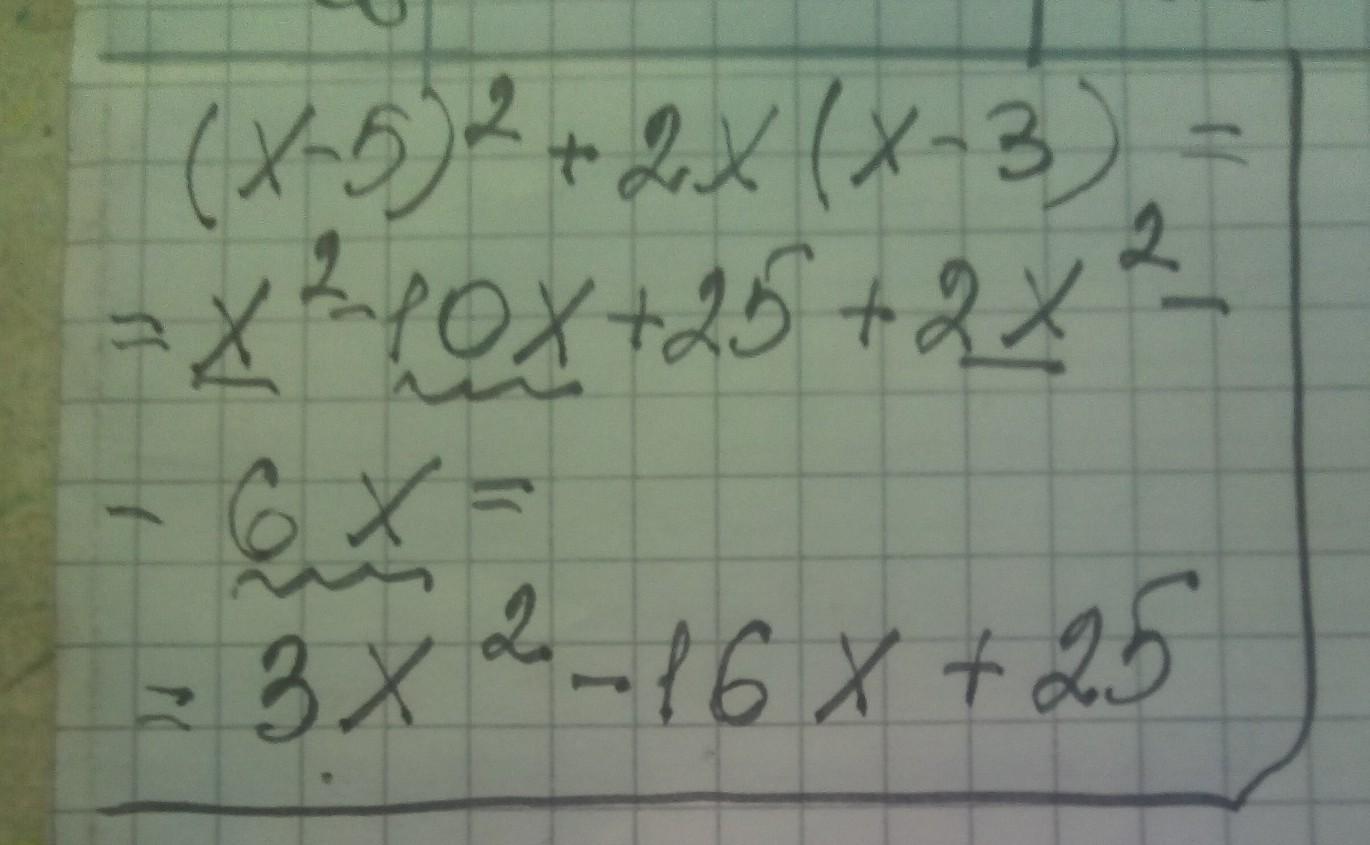 (x-5)² + 2x(x-3) =
= x² - 10x + 25 + 2x² -
- 6x =
= 3x² - 16x + 25